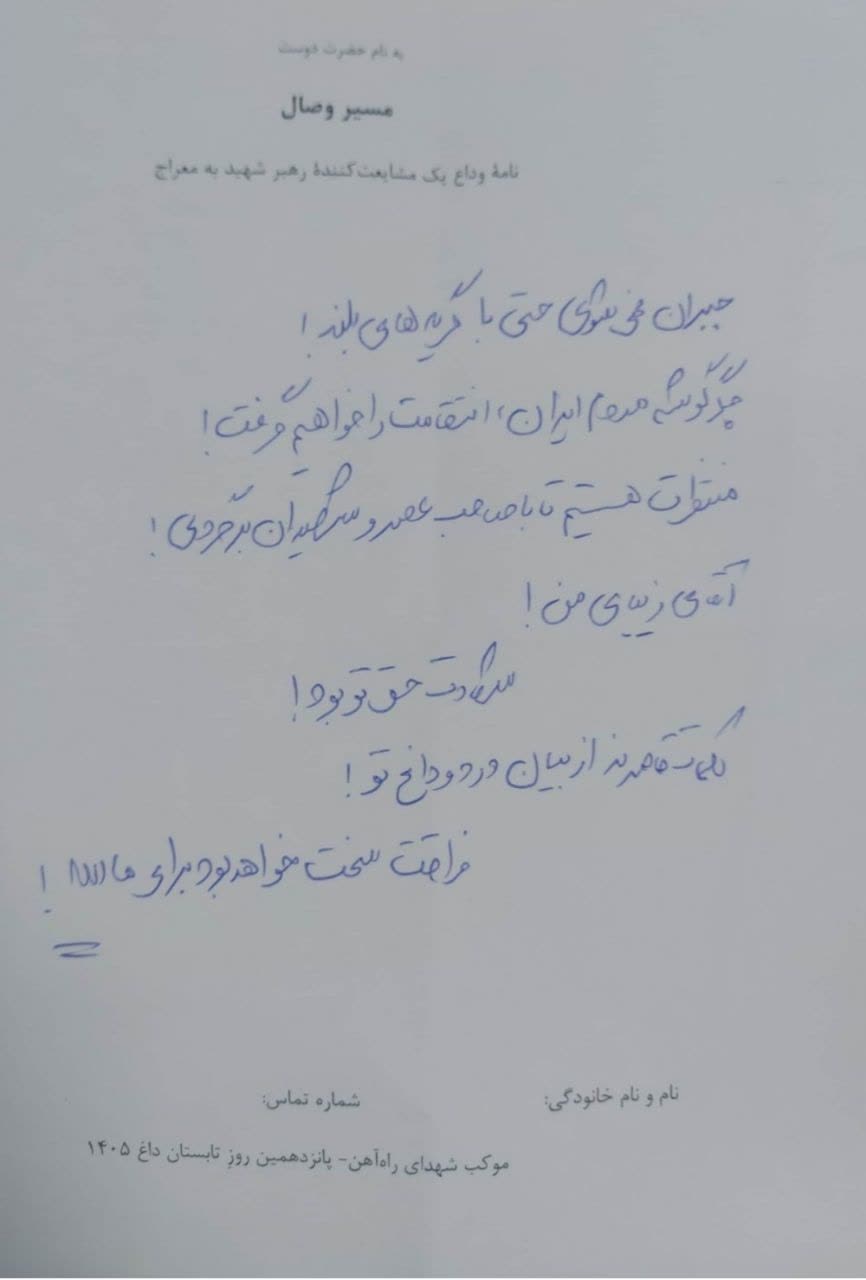 به نام حضرت دوست
مسیر وصال
نامهٔ وداع یک مشایعت‌کنندهٔ رهبر شهید به معراج
جبران نمی‌شوی حتی با گریه‌های بلند!
جگرگوشه مردم ایران، انتقامت را خواهیم گرفت!
منتظرت هستیم تا با صاحب عصر و شهیدان برگردی!
آقای زیبای من!
شهادت حق تو بود!
کلمات قاصرند از بیان درد و داغ تو!
فراقت سخت خواهد بود برای ما !
نام و نام خانودگی:
شماره تماس:
موکب شهدای راه‌آهن- پانزدهمین روز تابستان داغ ۱۴۰۵